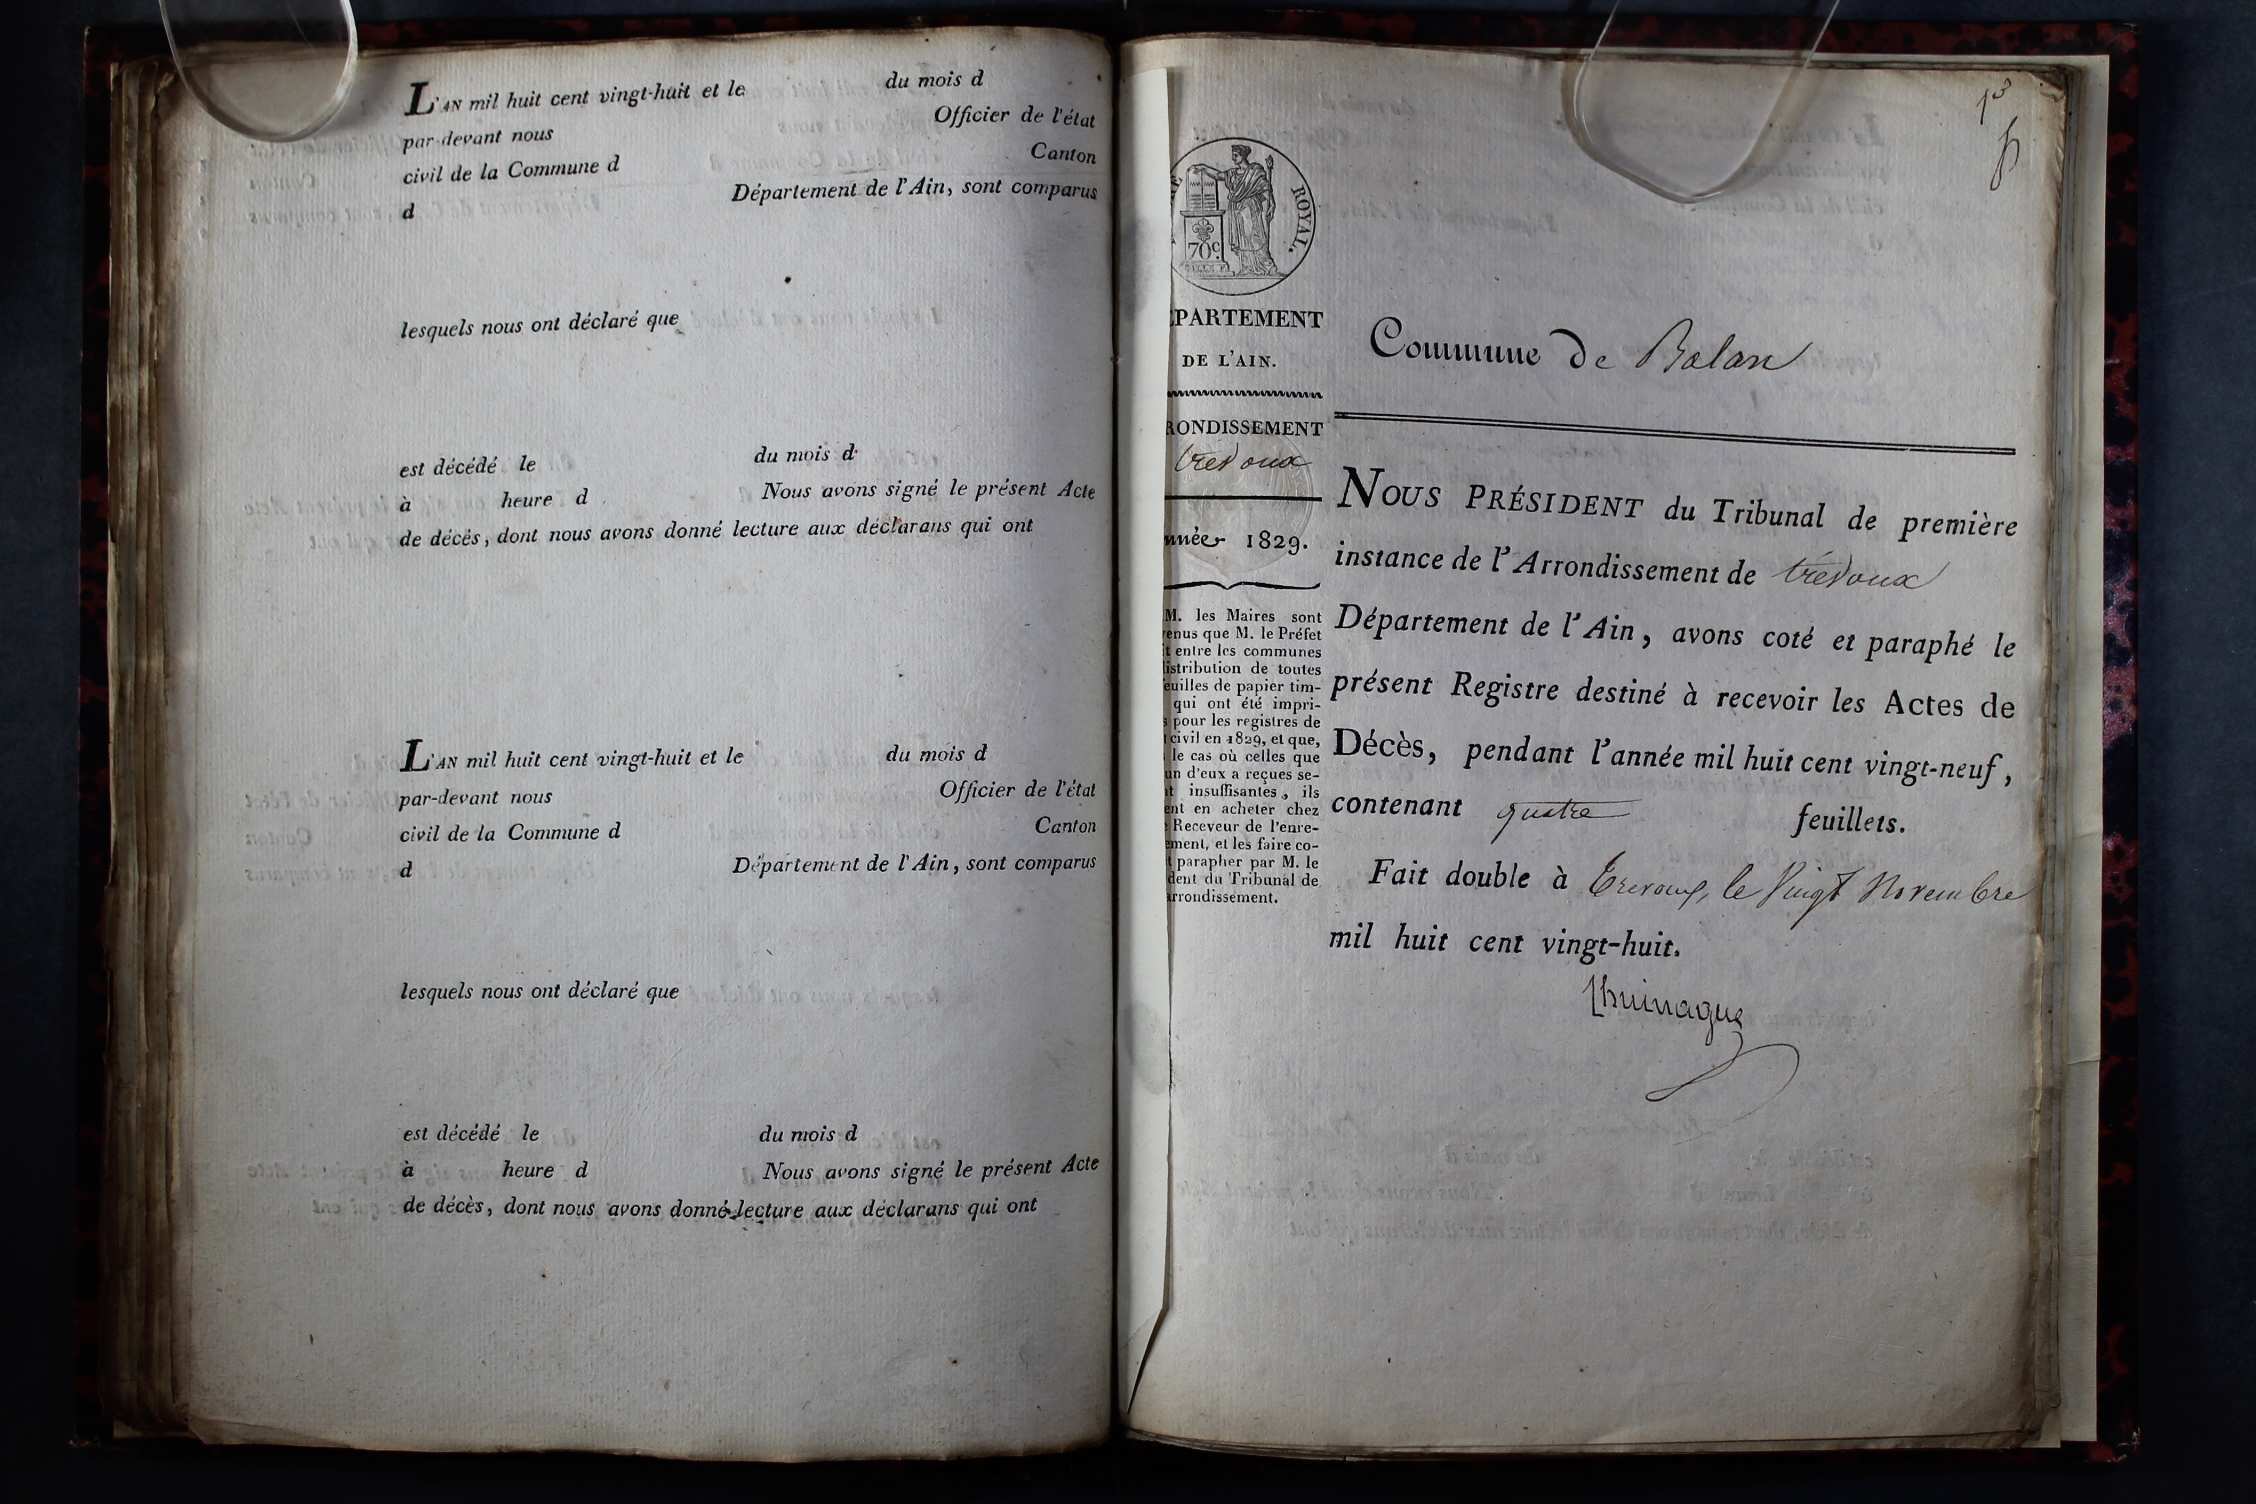 L'AN mil huit cent vingt-huit et le du mois d
par-devant nous Officier de l'état
civil de la Commune d Canton
d Département de l'Ain, sont comparus
lesquels nous ont déclaré que
est décédé le du mois d
à heure d Nous avons signé le présent Acte
de décès, dont nous avons donné lecture aux déclarans qui ont
L'AN mil huit cent vingt-huit et le du mois d
par-devant nous Officier de l'état
civil de la Commune d Canton
d Département de l'Ain, sont comparus
lesquels nous ont déclaré que
est décédé le du mois d
à heure d Nous avons signé le présent Acte
de décès, dont nous avons donné lecture aux déclarans qui ont
ROYAL.
70c
PARTEMENT
DE L'AIN.
RONDISSEMENT
trévoux
nnée 1829.
M. les Maires sont
enus que M. le Préfet
t entre les communes
istribution de toutes
euilles de papier tim-
qui ont été impri-
s pour les registres de
civil en 1829, et que,
le cas où celles que
un d'eux a reçues se-
t insuffisantes, ils
ent en acheter chez
Receveur de l'enre-
ement, et les faire co-
t parapher par M. le
dent du Tribunal de
arrondissement.
Commune de Balan
NOUS PRÉSIDENT du Tribunal de première
instance de l'Arrondissement de trévoux
Département de l'Ain, avons coté et paraphé le
présent Registre destiné à recevoir les Actes de
Décès, pendant l'année mil huit cent vingt-neuf,
contenant quatre feuillets.
Fait double à Trevoux, le Vingt Novembre
mil huit cent vingt-huit.